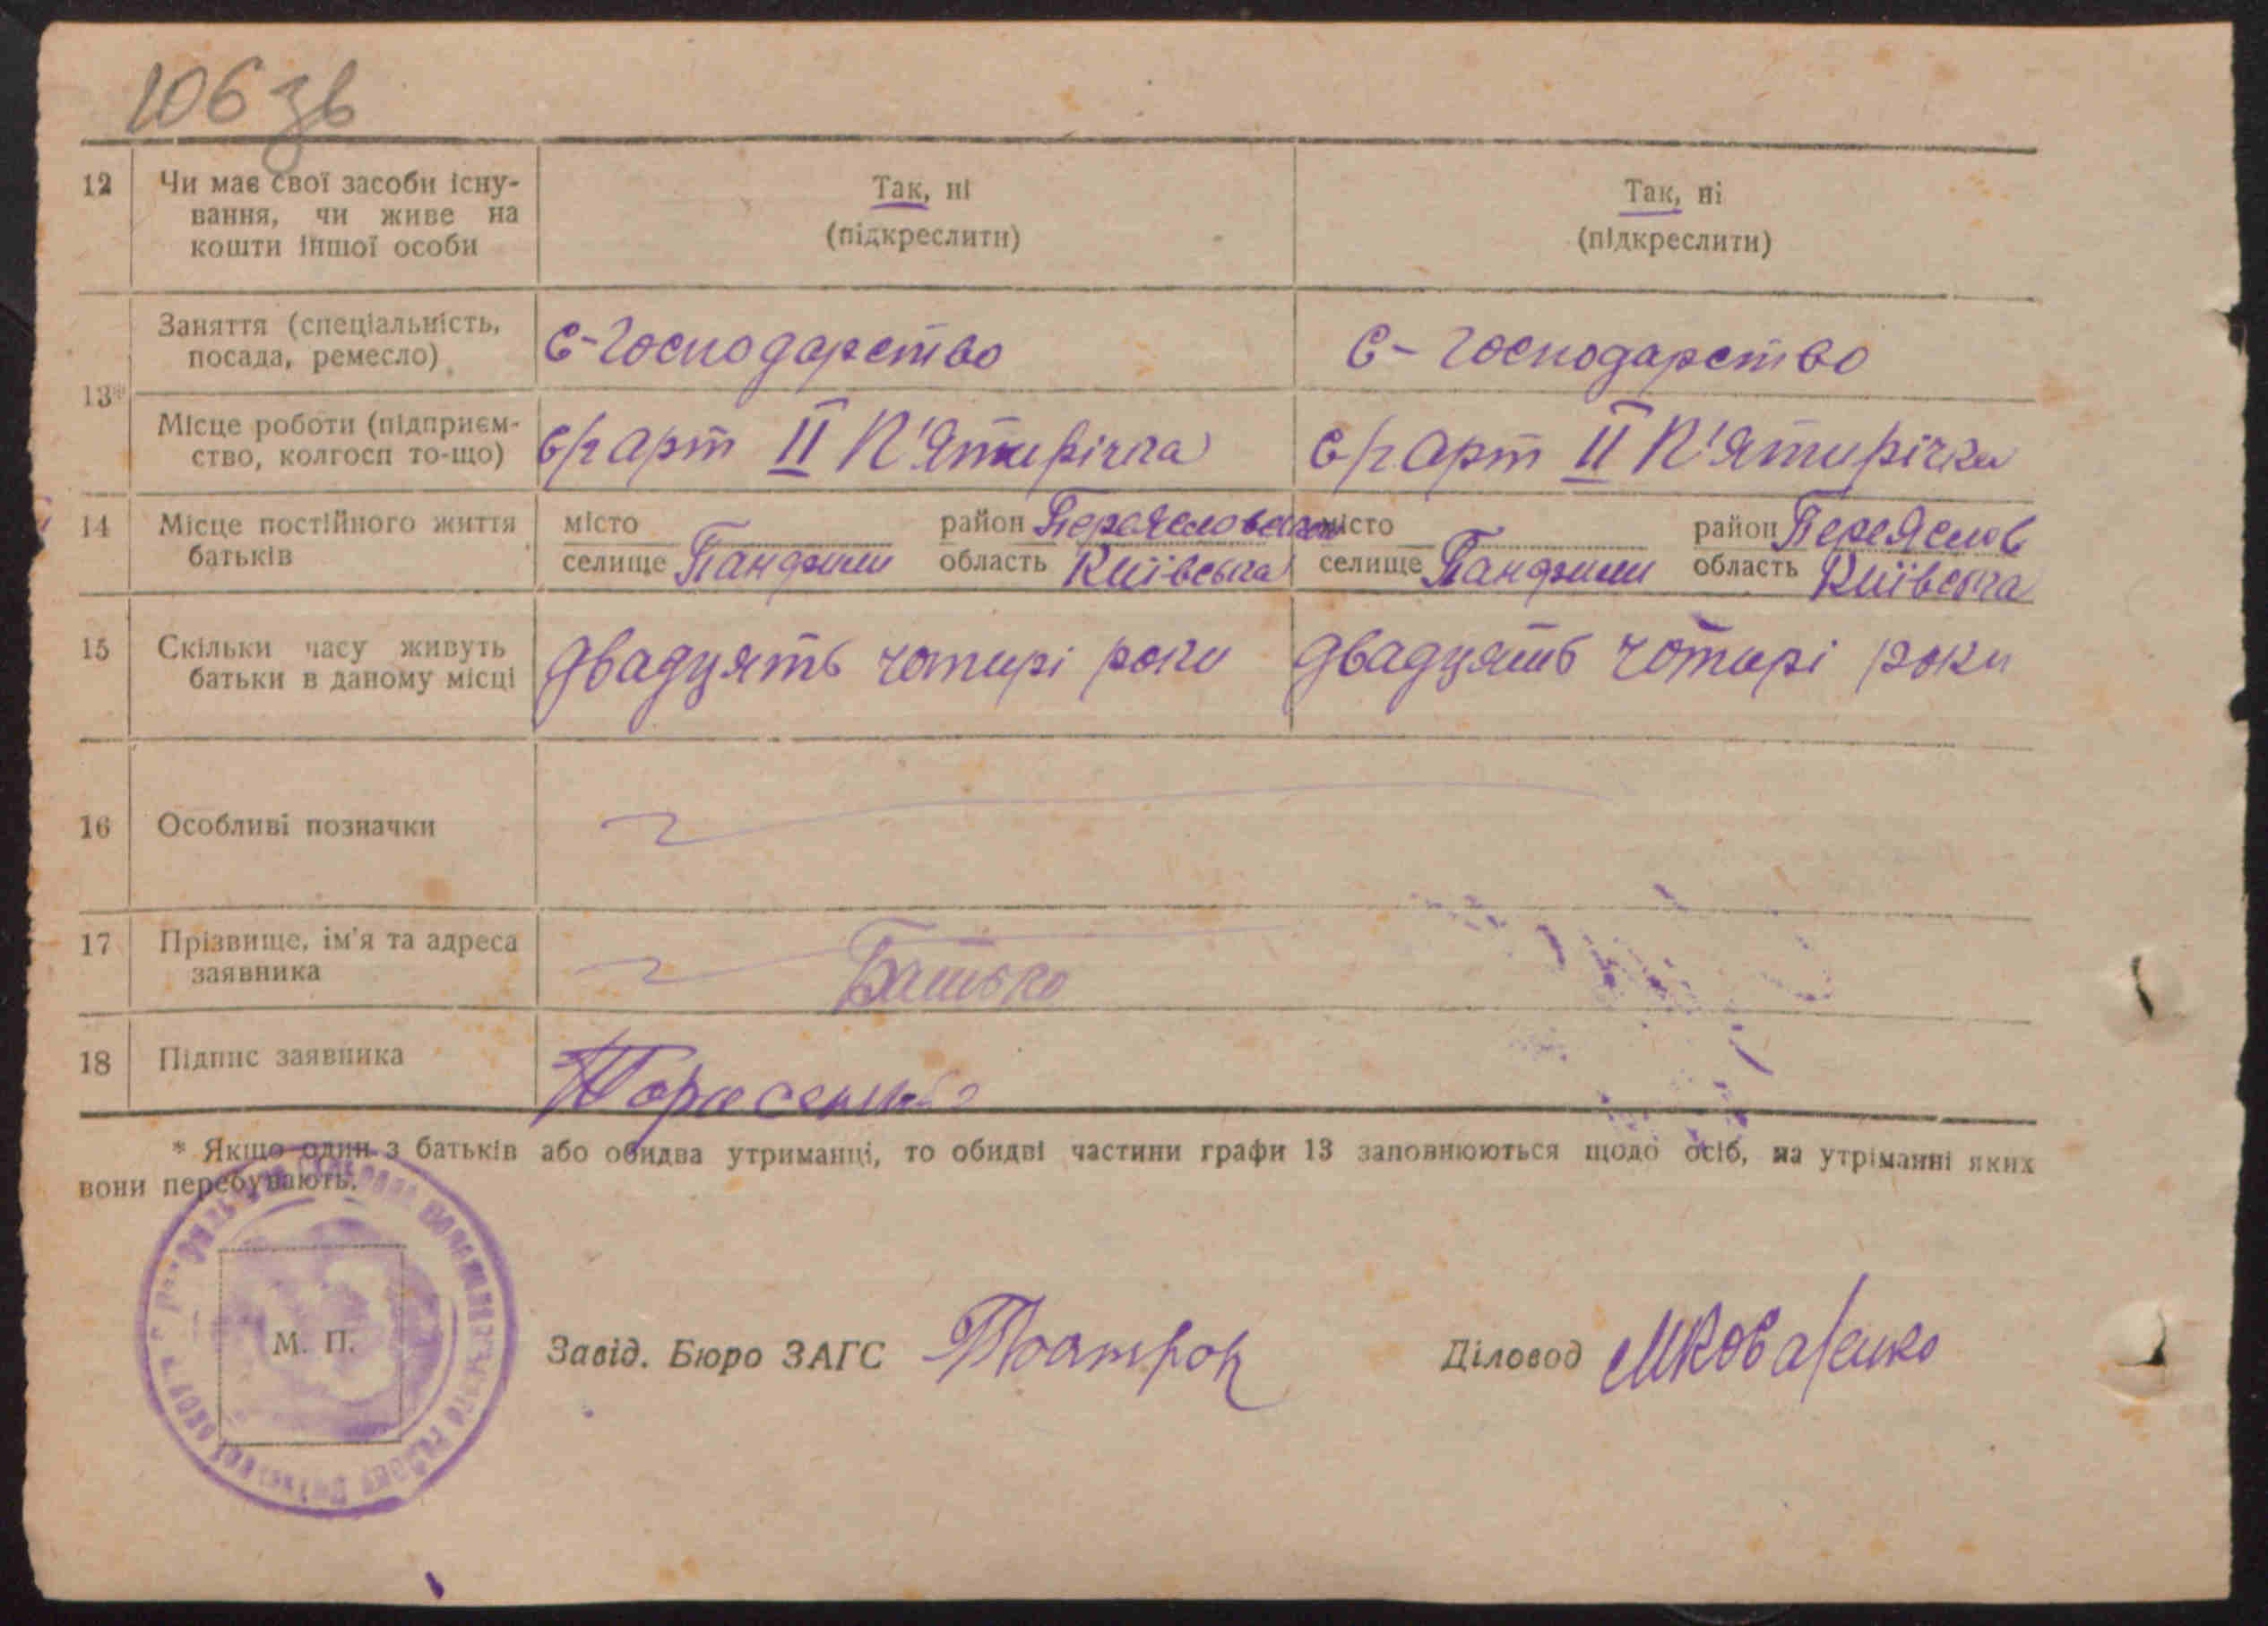 106 зв
12 Чи має свої засоби існу-
вання, чи живе на
кошти іншої особи
Так, ні
(підкреслити)
Так, ні
(підкреслити)
13*
Заняття (спеціальність,
посада, ремесло)
С-господарство
С-господарство
Місце роботи (підприєм-
ство, колгосп то-що)
с/г арт II П'ятирічка
с/г арт II П'ятирічки
14 Місце постійного життя
батьків
місто
селище
район
область Київська
місто
селище
район Переяслов
область Київська
15 Скільки часу живуть
батьки в даному місці
двадцять чотирі роки
двадцять чотирі роки
16 Особливі позначки
17 Прізвище, ім'я та адреса
заявника
Батько
18 Підпис заявника
* Якщо один з батьків або обидва утриманці, то обидві частини графи 13 заповнюються щодо осіб, на утріманні яких
вони перебувають.
М. П.
Завід. Бюро ЗАГС
Діловод